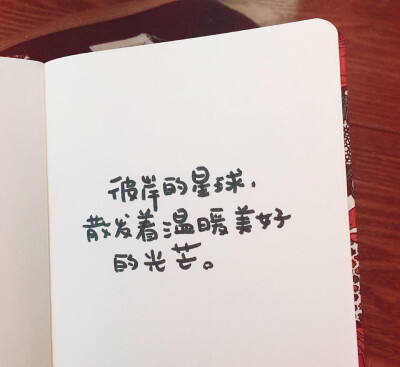 彼岸的星球,
散发着温暖美好
的光芒。